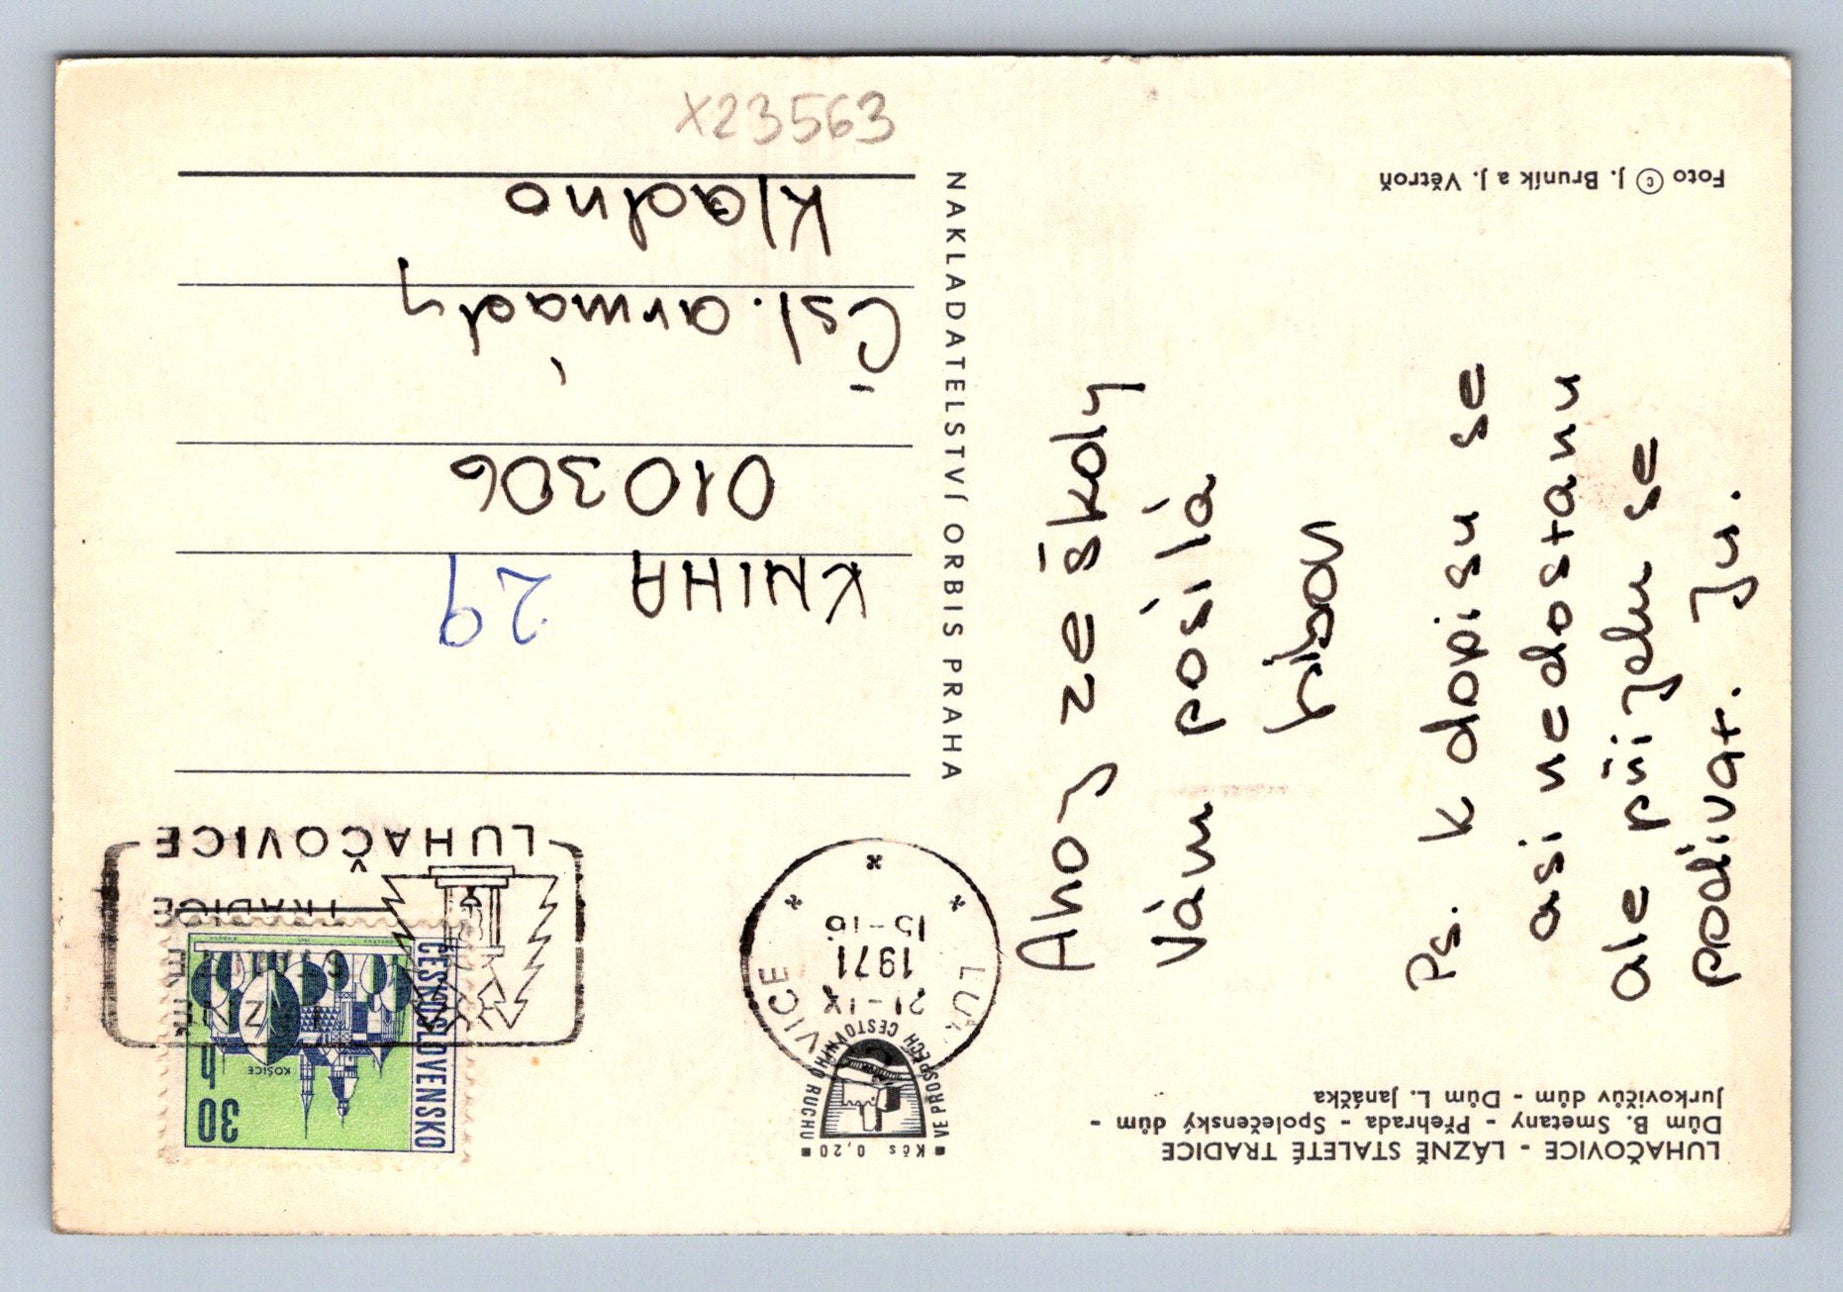 LUHAČOVICE - LÁZNĚ STALETÉ TRADICE
Dům B. Smetany - Přehrada - Společenský dům -
Jurkovičův dům - Dům L. Janáčka
Ahoj ze školy
Vám posílá
Ps. k dopisu se
asi nedostanu
ale přijedu se
podívat. Ju.
Foto © J. Bruník a J. Větroň
NAKLADATELSTVÍ ORBIS PRAHA
Kčs 0,20
VE PROSPĚCH CESTOVNÍHO RUCHU
21-IX
1971
15-16
ČESKOSLOVENSKO
30 h
KOŠICE
TRADICE
LUHAČOVICE
KNIHA 29
010306
Čsl. armády
Kladno
X23563